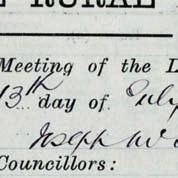 RURAL
Meeting of the
13th day of July
Joseph
Councillors: